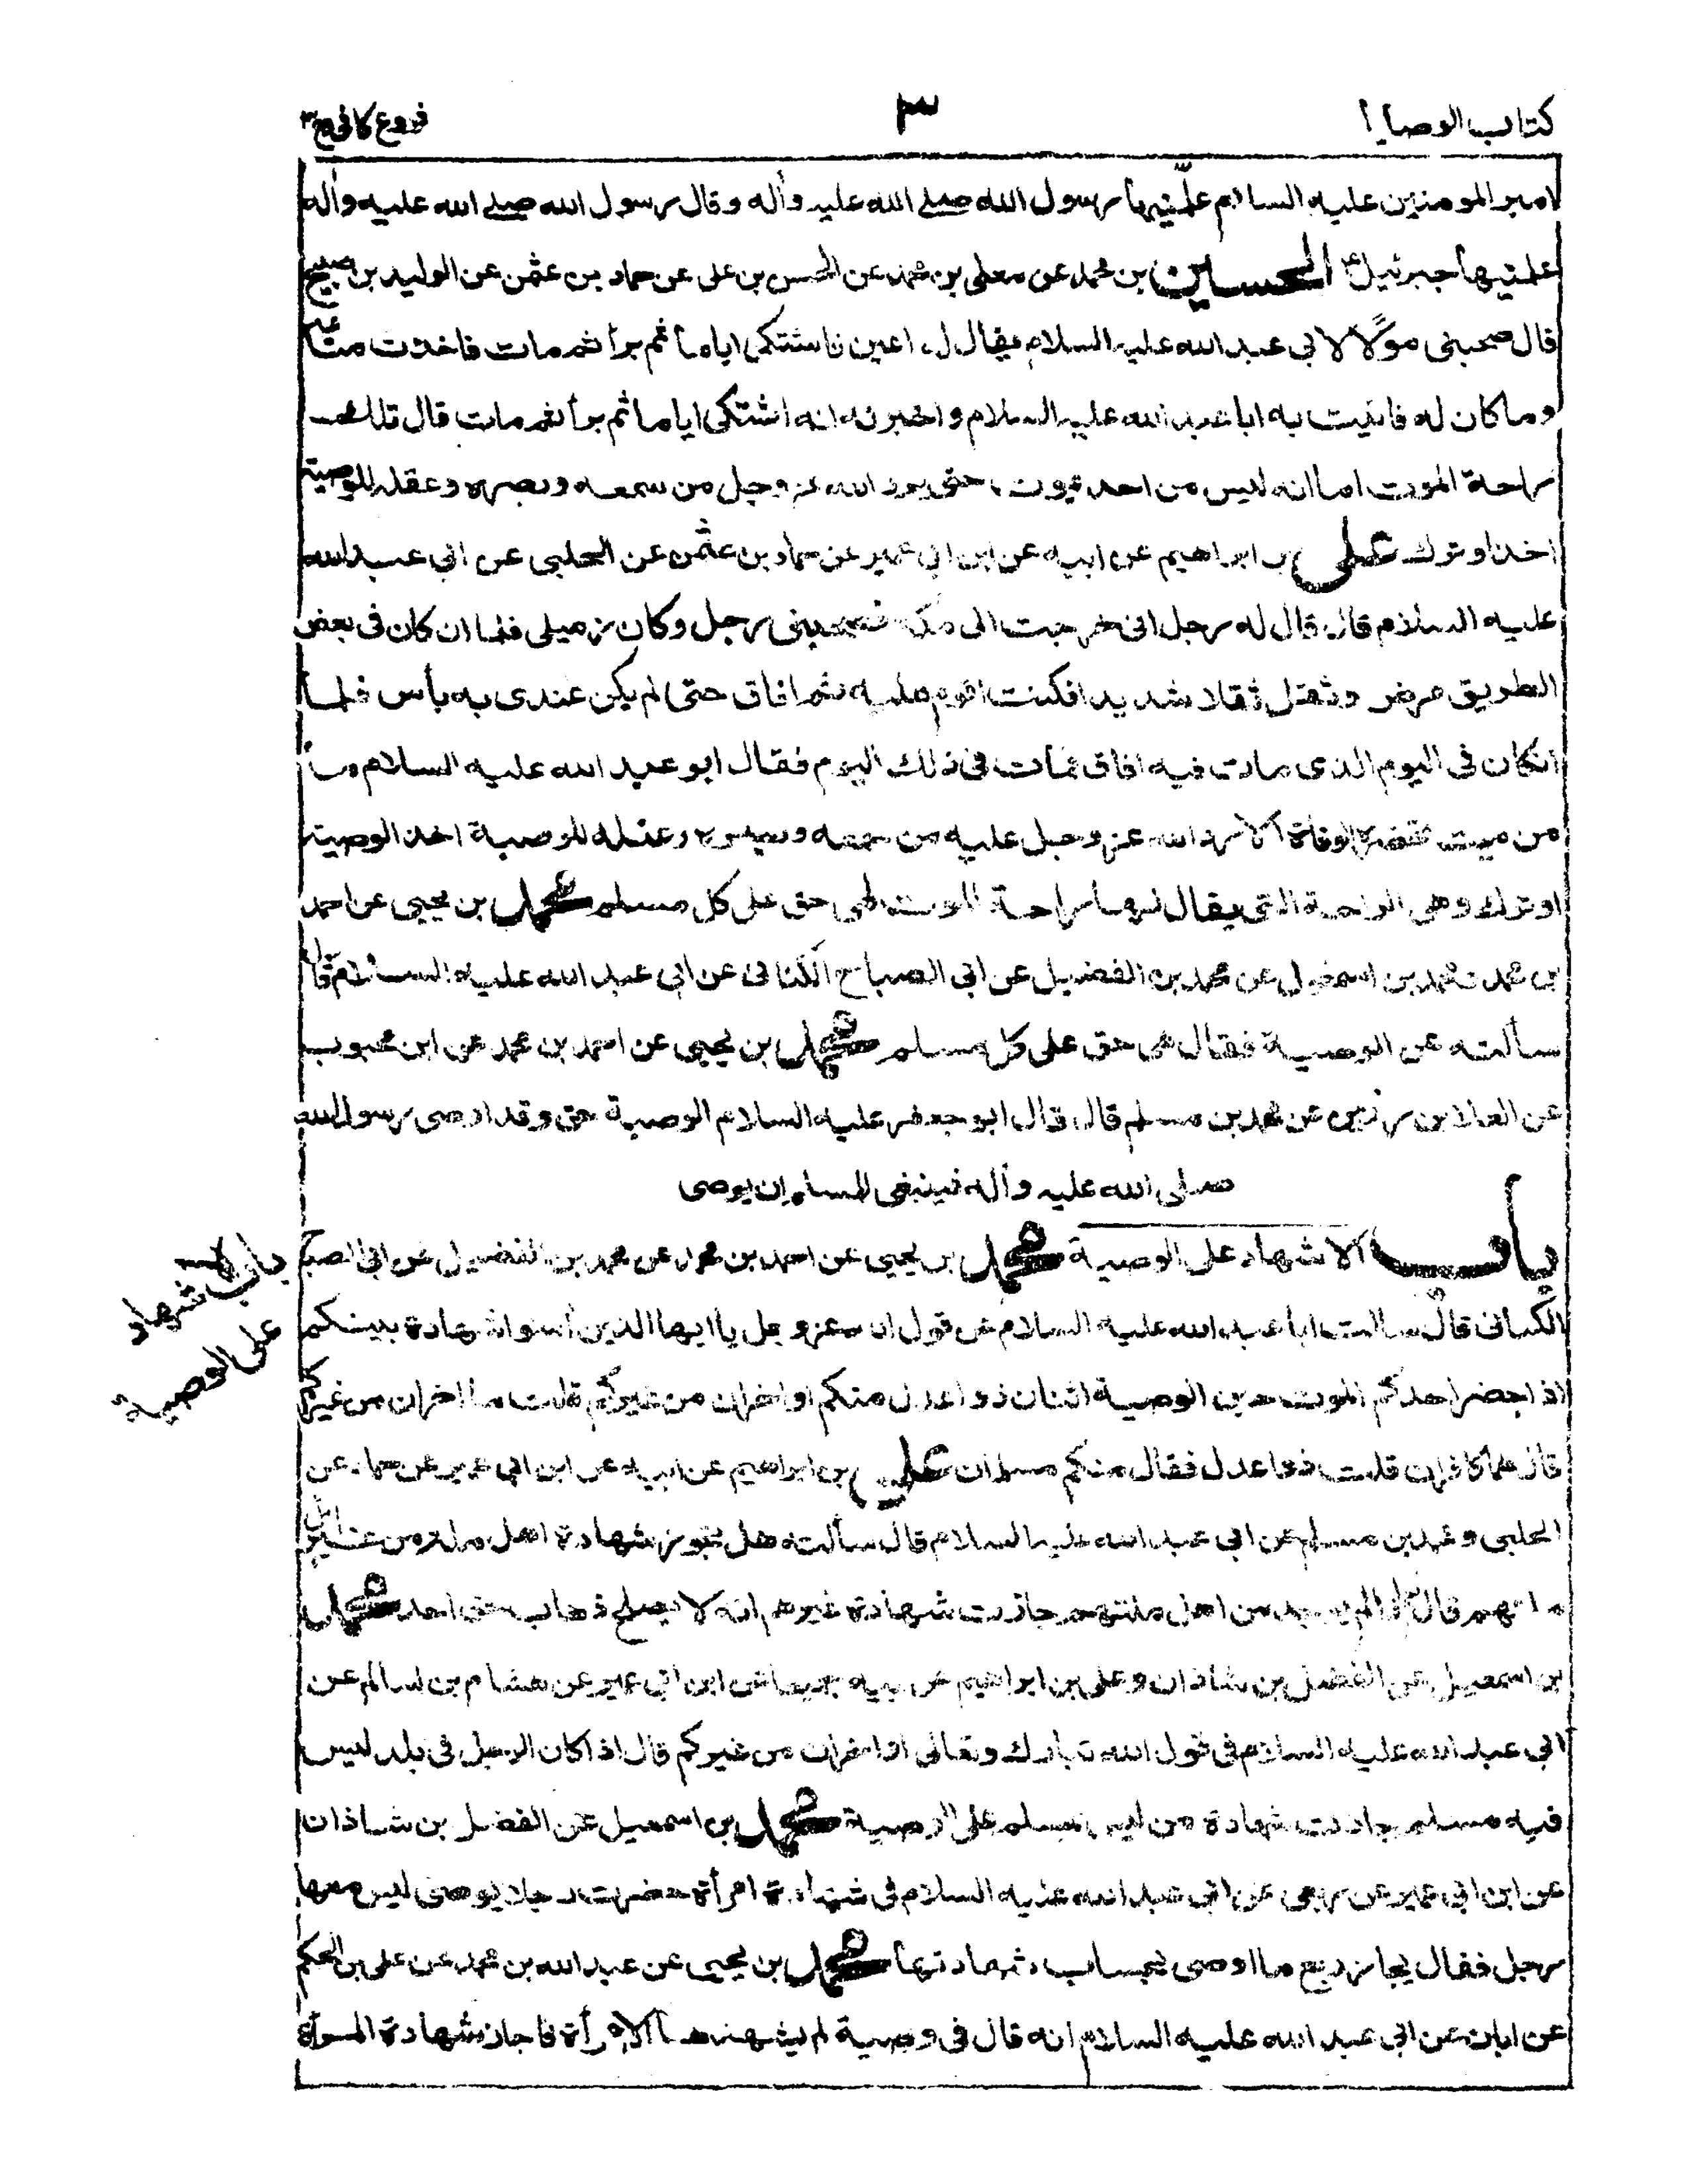 كتاب الوصايا
٣
فروع كافي ج ٣
لامير المومنين عليه السلام علّمنيها رسول الله صلى الله عليه وآله وقال رسول الله صلى الله عليه وآله
علمنيها جبرئيل ع الحسين بن محمد عن معلى بن محمد عن الحسن بن على عن حماد بن عثمن عن الوليد بن صبيح
قال صحبنى مولا لابى عبد الله عليه السلام يقال له اعين فاشتكى اياما ثم برأ ثم مات فاخذت متاعه
وما كان له فاتيت به ابا عبد الله عليه السلام واخبرته انه اشتكى اياما ثم برأ ثم مات قال تلك
راحة الموت اما انه ليس من احد يموت حتى يرد الله عز وجل من سمعه وبصره وعقله للوصية
اخذ او ترك على بن ابراهيم عن ابيه عن ابن ابى عمير عن حماد بن عثمن عن الحلبى عن ابى عبد الله
عليه السلام قال قال له رجل انى خرجت الى مكة فصحبنى رجل وكان زميلى فلما ان كان فى بعض
الطريق مرض وثقل ثقلا شديدا فكنت اقوم عليه ثم افاق حتى لم يكن عندى به بأس فلما
انكان فى اليوم الذى مات فيه افاق فمات فى ذلك اليوم فقال ابو عبد الله عليه السلام ما
من ميت تحضره الوفاة الا رد الله عز وجل عليه من سمعه وبصره وعقله للوصية اخذ الوصية
او ترك وهى الراحة التى يقال لها راحة الموت فهى حق على كل مسلم محمد بن يحيى عن احمد
بن محمد عن محمد بن اسمعيل عن محمد بن الفضيل عن ابى الصباح الكنانى عن ابى عبد الله عليه السلام قال
سألته عن الوصية فقال هى حق على كل مسلم محمد بن يحيى عن احمد بن محمد عن ابن محبوب
عن العلا بن رزين عن محمد بن مسلم قال قال ابو جعفر عليه السلام الوصية حق وقد اوصى رسول الله
صلى الله عليه وآله فينبغى للمسلم ان يوصى
باب الاشهاد على الوصية محمد بن يحيى عن احمد بن محمد عن محمد بن الفضيل عن ابى الصباح
باب الاشهاد
على الوصية
الكنانى قال سالت ابا عبد الله عليه السلام عن قول الله عز وجل يا ايها الذين آمنوا شهادة بينكم
اذا حضر احدكم الموت حين الوصية اثنان ذوا عدل منكم او اخران من غيركم قلت ما اخران من غيركم
قال هما كافران قلت ذوا عدل فقال منكم مسلمان على بن ابراهيم عن ابيه عن ابن ابى عمير عن حماد عن
الحلبى ومحمد بن مسلم عن ابى عبد الله عليه السلام قال سألته هل تجوز شهادة اهل ملة من غير اهل
ملتهم قال نعم اذا لم يجد من اهل ملتهم جازت شهادة غيرهم انه لا يصلح ذهاب حق احد محمد
بن اسمعيل عن الفضل بن شاذان وعلى بن ابراهيم عن ابيه جميعا عن ابن ابى عمير عن هشام بن سالم عن
ابى عبد الله عليه السلام فى قول الله تبارك وتعالى او اخران من غيركم قال اذا كان الرجل فى بلد ليس
فيه مسلم جازت شهادة من ليس بمسلم على الوصية محمد بن اسمعيل عن الفضل بن شاذان
عن ابن ابى عمير عن ربعى عن ابى عبد الله عليه السلام فى شهادة امرأة حضرت رجلا يوصى ليس معها
رجل فقال يجاز ربع ما اوصى بحساب شهادتها محمد بن يحيى عن عبد الله بن محمد عن على بن الحكم
عن ابان عن ابى عبد الله عليه السلام انه قال فى وصية لم يشهدها الا امرأة فاجاز شهادة المرأة